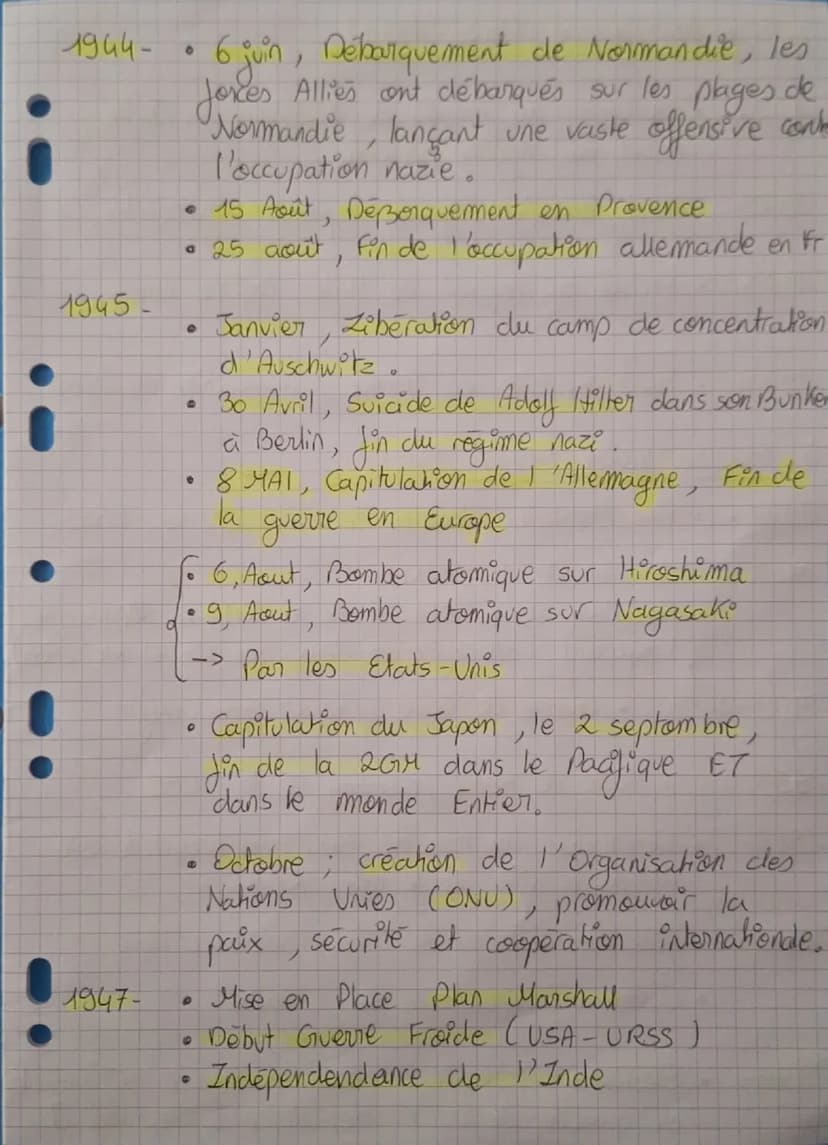 1944- • 6 juin, Débarquement de Normandie, les
forces Alliés ont débarqués sur les plages de
Normandie, lançant une vaste offensive cont
l'occupation nazie.
• 15 Août, Débarquement en Provence
• 25 août, Fin de l'occupation allemande en Fr
1945 -
• Janvier, Libération du camp de concentration
d'Auschwitz.
• 30 Avril, Suicide de Adolf Hilter dans son Bunker
à Berlin, fin du régime nazi.
• 8 MAI, Capitulation de l'Allemagne, Fin de
la guerre en Europe
• 6, Aout, Bombe atomique sur Hiroshima
• 9, Aout, Bombe atomique sur Nagasaki
-> Par les Etats-Unis
• Capitulation du Japon, le 2 septembre,
fin de la 2GM dans le Pacifique ET
dans le monde Entier.
• Octobre ; création de l'Organisation des
Nations Unies (ONU), promouvoir la
paix, sécurité et coopération internationale.
1947- • Mise en Place Plan Marshall
• Début Guerre Froide (USA - URSS)
• Indépendendance de l'Inde